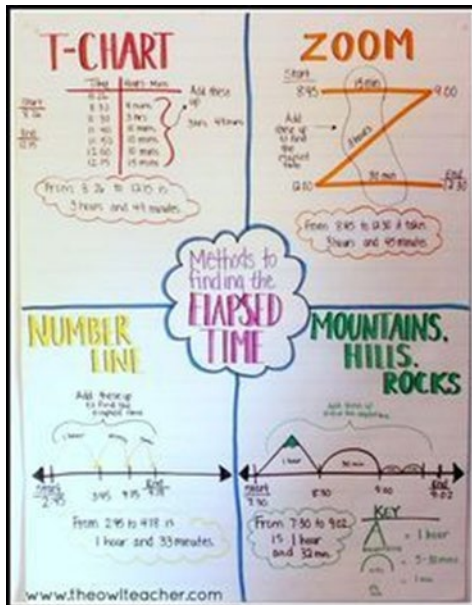 T-CHART
Time Hours : Mins
8:26
8:30 4 mins
11:30 3 hrs
11:40 10 mins
11:50 10 mins
12:00 10 mins
12:15 15 mins
Start
8:26
End
12:15
Add these
up
3hrs 49mins
From 8:26 to 12:15 is
3 hours and 49 minutes
ZOOM
Start
8:45
15 min
9:00
Add
these up
to find
the
elapsed
time
3 hours
12:00
30 min
End
12:30
From 8:45 to 12:30 it takes
3 hours and 45 minutes
Methods to
finding the
ELAPSED
TIME
NUMBER
LINE
Add these up
to find the
elapsed time
1 hour
Start
2:45
3:45
4:15
End
4:18
From 2:45 to 4:18 is
1 hour and 33 minutes.
MOUNTAINS,
HILLS,
ROCKS
Add these up
1 hour
30 min
Start
7:30
8:30
9:00
End
9:02
From 7:30 to 9:02
is 1 hour
and 32 min.
KEY
= 1 hour
= 5-30 mins
= 1 min
www.theowlteacher.com